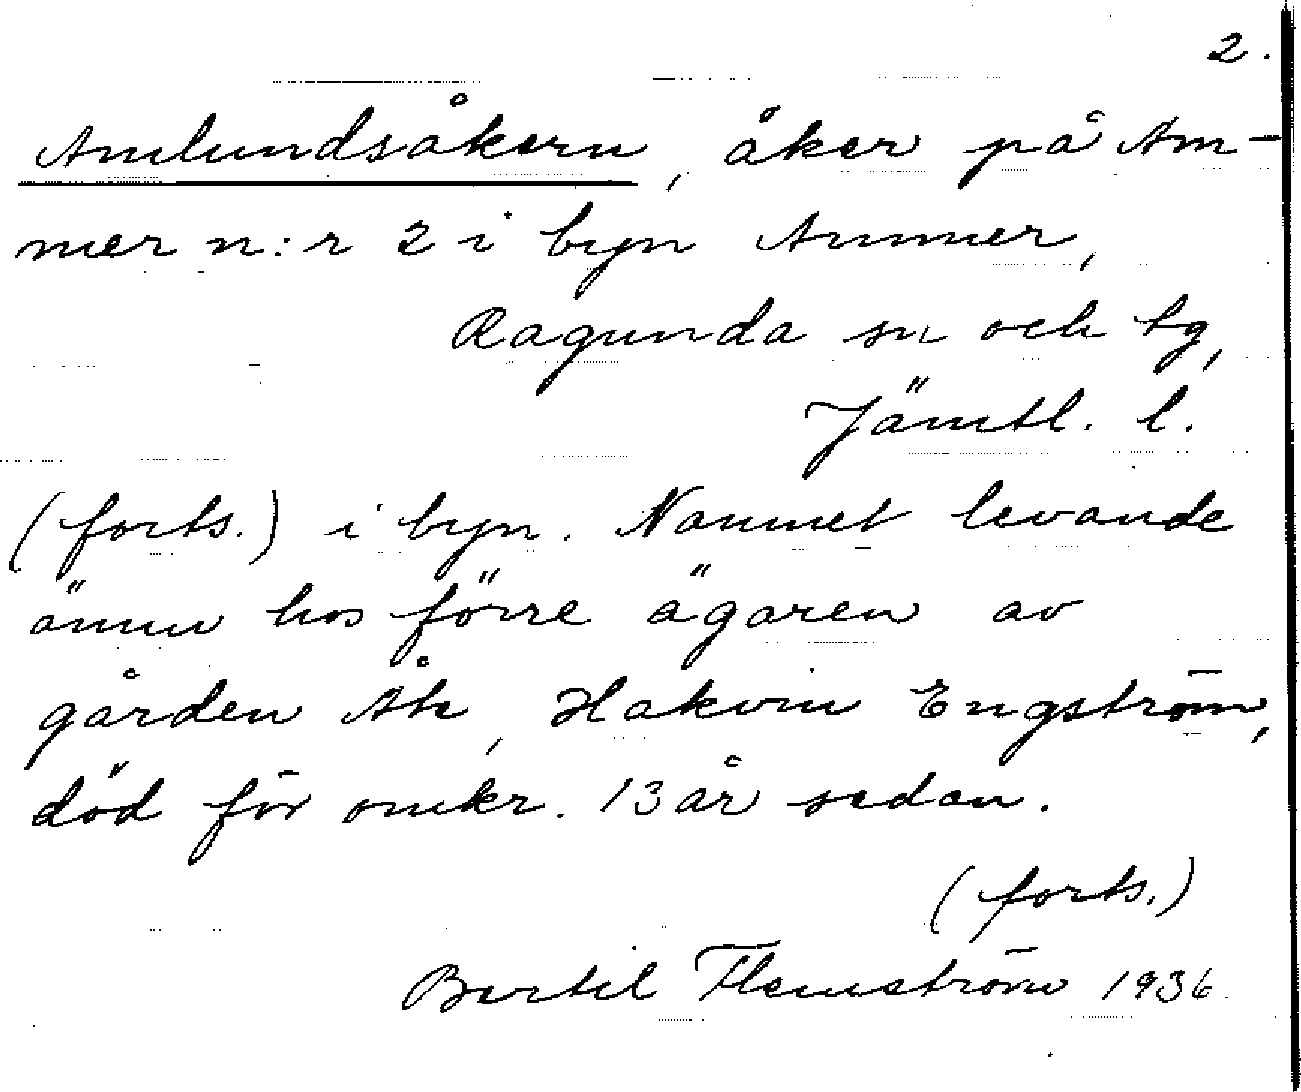 2.
Amlundsåkern, åker på Am-
mer n:r 2 i byn Ammer,
Ragunda sn och tg,
Jämtl. l.
(forts.) i byn. Namnet levande
ännu hos förre ägaren av
gården Åk, Hakvin Engström,
död för omkr. 13 år sedan.
(forts.)
Bertil Flemström 1936